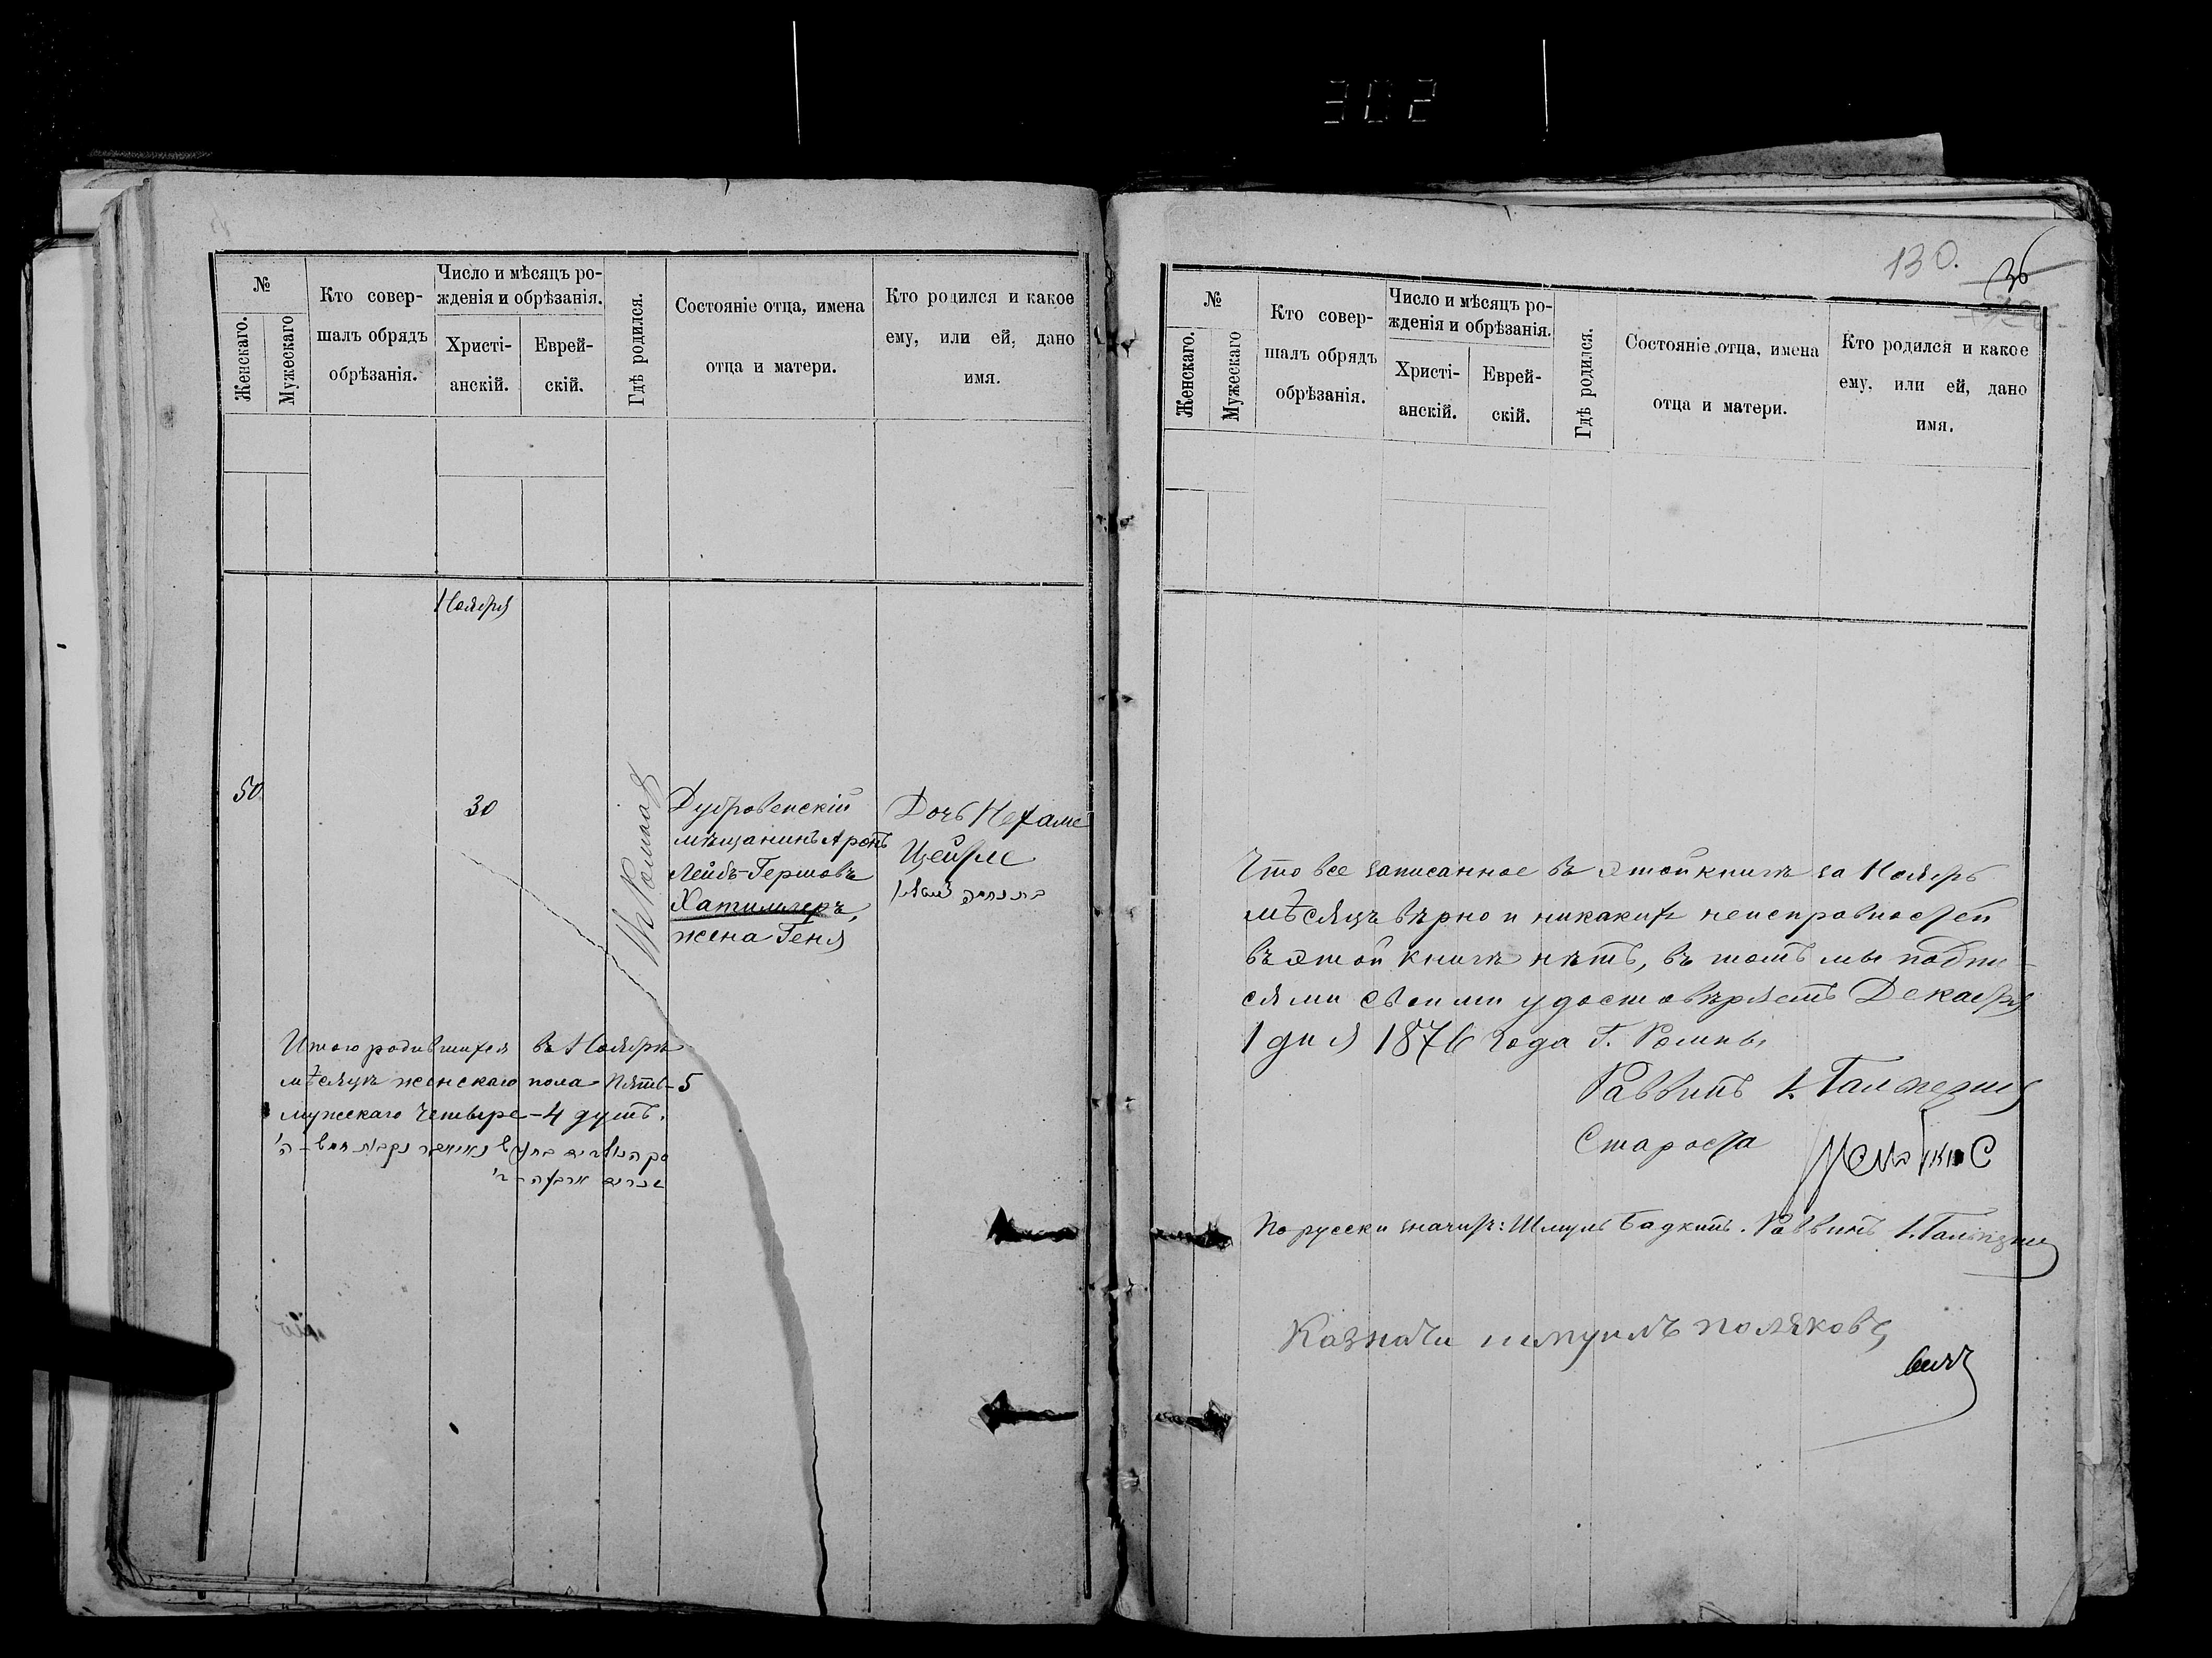 302
№
Женскаго.
Мужескаго
Кто совер-
шалъ обрядъ
обрѣзанія.
Число и мѣсяцъ ро-
жденія и обрѣзанія.
Христі-
анскій.
Еврей-
скій.
Гдѣ родился.
Состояніе отца, имена
отца и матери.
Кто родился и какое
ему, или ей, дано
имя.
Ноября
50
30
Дубровенскій
мѣщанинъ Аронъ
Лейбъ-Гершовъ
Хатимлеръ,
жена Геня
Дочь Нехаме
Цейрле
Итого родившихся въ Ноябрѣ
мѣсяцѣ женскаго пола пять-5
мужескаго четыре-4 душъ.
130.
36
№
Женскаго.
Мужескаго
Кто совер-
шалъ обрядъ
обрѣзанія.
Число и мѣсяцъ ро-
жденія и обрѣзанія.
Христі-
анскій.
Еврей-
скій.
Гдѣ родился.
Состояніе отца, имена
отца и матери.
Кто родился и какое
ему, или ей, дано
имя.
Что все записанное въ этой книгѣ за Ноябрь
мѣсяцъ вѣрно и никакихъ неисправностей
въ этой книгѣ нѣтъ, въ томъ мы подпи-
сями своими удостовѣряемъ Декабря
1 дня 1876 года Г. Ромны
Раввинъ І. Гальперин
Староста
По русски значитъ: Шмуль Бадкинъ. Раввинъ І. Гальперин
Казначи шмуилъ поляковъ